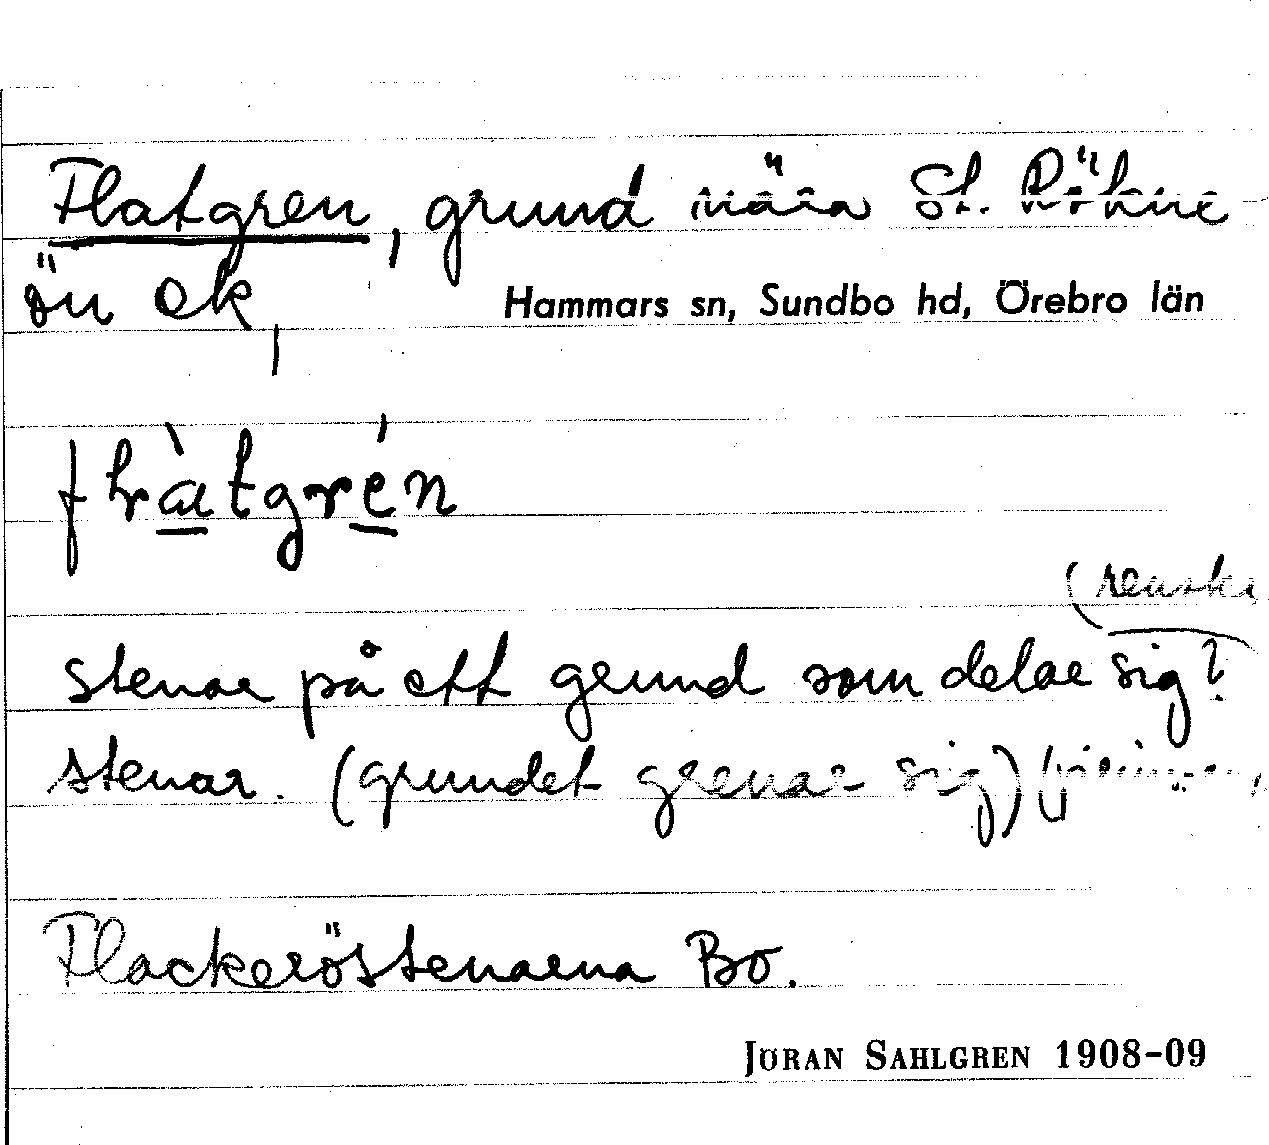 Flatgren, grund nära St. Rökne
ön ek,
Hammars sn, Sundbo hd, Örebro län
flràtgrén
stenar på ett grund som delar sig?
stenar. (grundet grenar sig)
Flackeröstenarna Bo.
JÖRAN SAHLGREN 1908-09